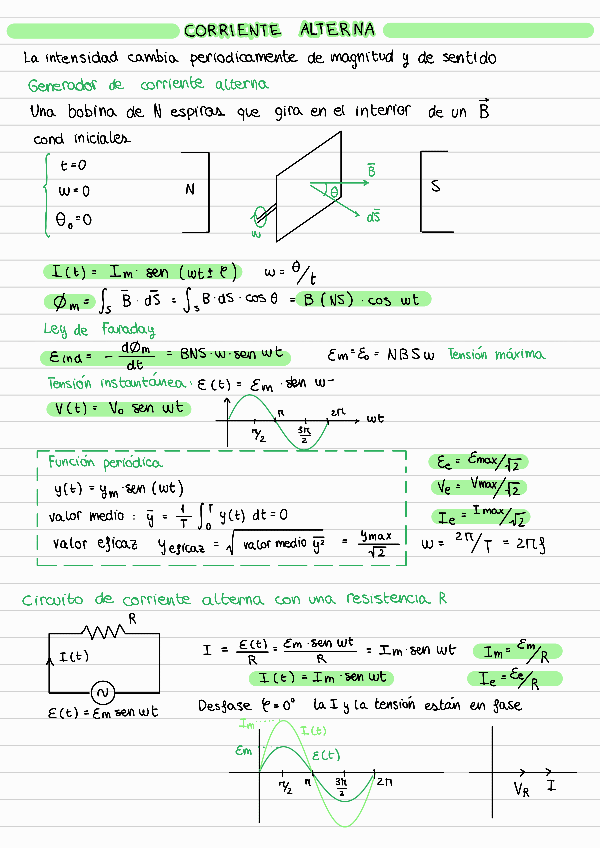 CORRIENTE ALTERNA
La intensidad cambia periodicamente de magnitud y de sentido
Generador de corriente alterna
Una bobina de N espiras que gira en el interior de un B⃗
cond iniciales
t=0
w=0
θ₀=0
N
B̄
θ
ds̄
w
S
I(t) = Im· sen (wt± φ) w = θ/t
Øm = ∫s B̄ · ds̄ = ∫s B·ds·cos θ = B (NS) · cos wt
Ley de Faraday
Eind = - dØm/dt = BNS·w·sen wt Em = E₀ = NBSw Tensión máxima
Tensión instantánea: E(t) = Em · sen w-
V(t) = V₀ sen wt
π/2 π 3π/2 2π wt
Función periódica
y(t) = ym · sen (wt)
valor medio : ȳ = 1/T ∫₀ᵀ y(t) dt = 0
valor eficaz yeficaz = √valor medio ȳ² = ymax/√2
Ee = Emax/√2
Ve = Vmax/√2
Ie = Imax/√2
w = 2π/T = 2πf
Circuito de corriente alterna con una resistencia R
R
I(t)
E(t) = Em sen wt
I = E(t)/R = Em·sen wt/R = Im·sen wt Im = Em/R
I(t) = Im·sen wt Ie = Ee/R
Desfase φ=0° la I y la tensión están en fase
Im I(t)
Em E(t)
π/2 π 3π/2 2π
VR I